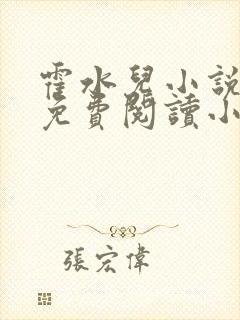 霍水兒小說
免費閱讀小
張宏偉